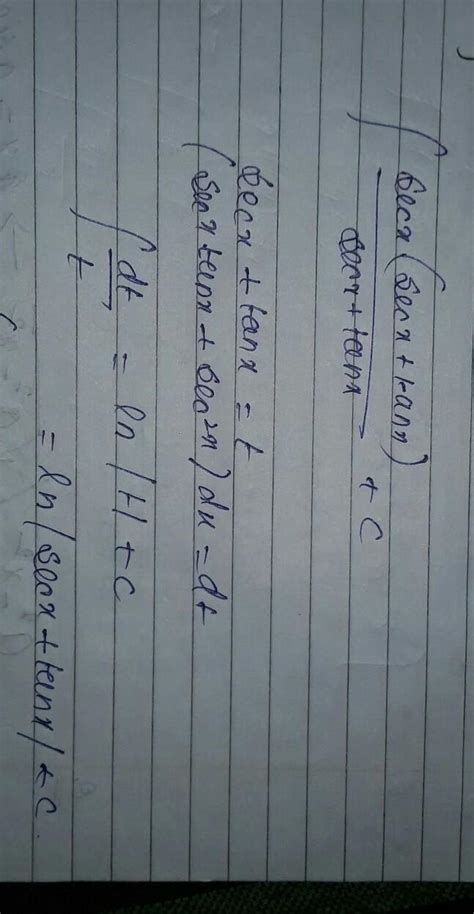 ∫ secx (secx + tanx)
secx + tanx + c
secx + tanx = t
(secx tanx + sec²x) dx = dt
∫ dt/t = ln |t| + c
= ln |secx + tanx| + c.